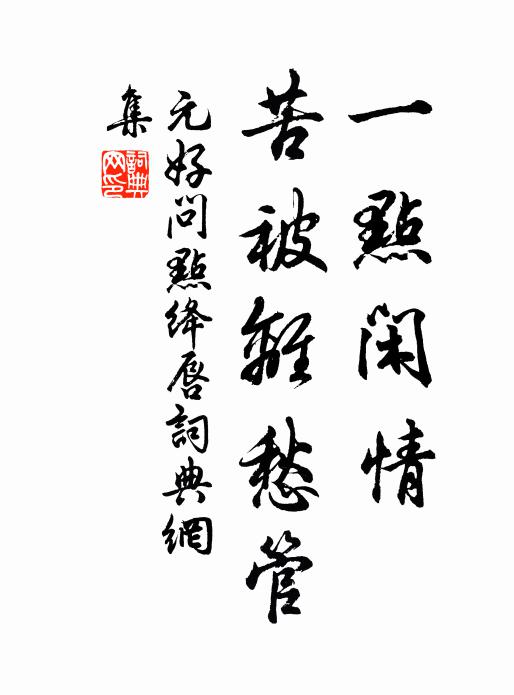 一點閑情
苦被離愁管
元好問點絳唇詞典網
集
詞典
網印